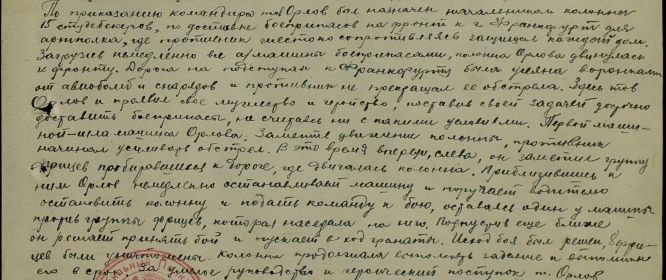 По приказанию командира тов Орлов был назначен начальником колонны
15 студебекеров, по доставке боеприпасов на фронт к г Франкфурт для
артполка, где противник жестоко сопротивляясь защищал каждый дом.
Загрузив немедленно все автомашины боеприпасами, колонна Орлова двинулась
к фронту. Дорога на подступах к Франкфурту была усеяна воронками
от авиабомб и снарядов и противник не прекращал ее обстрела. Здесь тов
Орлов и проявил свое мужество и геройство, поставив своей задачей досрочно
доставить боеприпасы, не считаясь ни с какими условиями. Первой маши-
ной шла машина Орлова. Заметив движение колонны, противник
начинал усиленно обстрел. В это время впереди, слева, он заметил группу
фрицев пробиравшихся к дороге, где двигалась колонна. Приблизившись к
ним Орлов немедленно останавливает машину и поручает водителю
остановить колонну и подать команду к бою, оставаясь один у машины
против группы фрицев, которая наседала на него. Подпустив еще ближе
он решает принять бой и пускает в ход гранаты. Исход боя был решен, фри-
цев были уничтожены. Колонна продолжала выполнять задание и выполнила
его в срок. За умелое руководство и геройский поступок т. Орлов